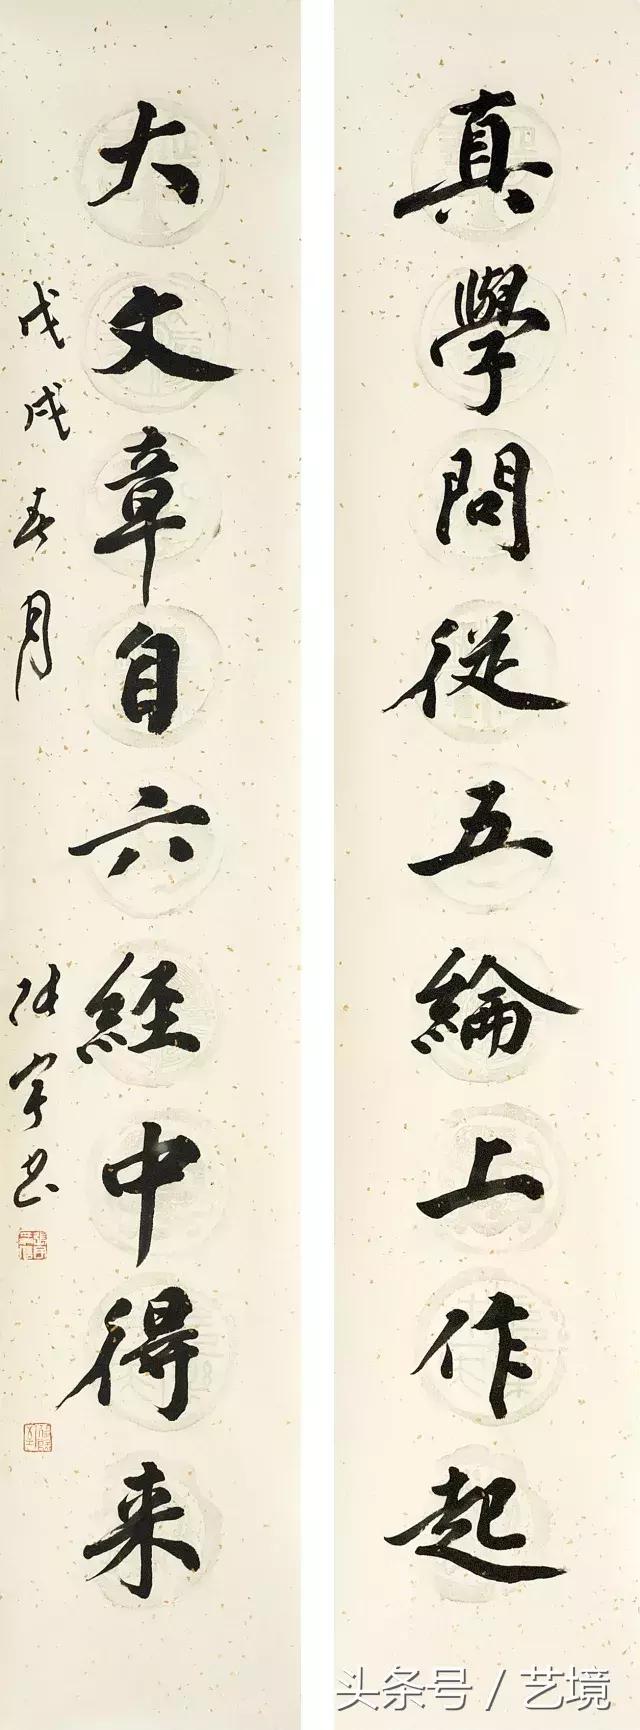 真學問從五綸上作起
大文章自六經中得来
戊戌春月
張宇书
头条号 / 艺境